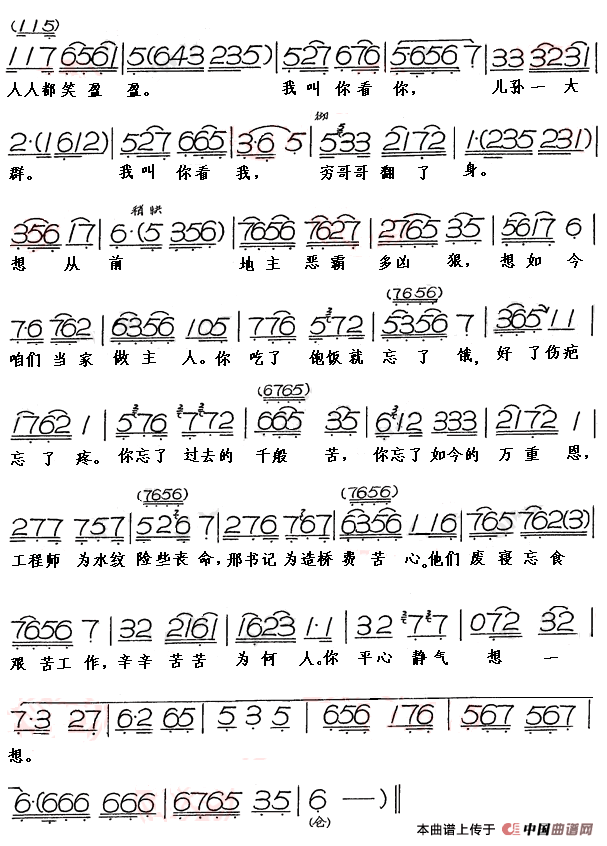 (115)
117 6561 | 5(643 235) | 527 676 | 5·656 7 | 33 3231 |
人人都笑盈盈。 我叫你看你， 儿孙一大
2·(1612) | 527 665 | 3·6 5 | 533 2172 | 1·(235 231) |
群。 我叫你看我， 穷哥哥翻了身。
稍快
356 17 | 6·(5 356) | 7656 7627 | 2765 35 | 5617 6 |
想从前 地主恶霸多凶狠，想如今
(7656)
7·6 762 | 6356 105 | 776 572 | 5356 7 | 365 11 |
咱们当家做主人。你吃了饱饭就忘了饿，好了伤疤
(6765)
1762 1 | 576 772 | 665 35 | 612 333 | 2172 1 |
忘了疼。你忘了过去的千般苦，你忘了如今的万重恩，
(7656) (7656)
277 757 | 526 7 | 276 767 | 6356 116 | 765 762(3) |
工程师为水纹险些丧命，那书记为造桥费苦心。他们废寝忘食
7656 7 | 32 2161 | 1623 1·1 | 32 77 | 072 32 |
艰苦工作，辛辛苦苦为何人。你平心静气想一
7·3 27 | 6·2 65 | 5 3 5 | 656 176 | 567 567 |
想。
6·(666 666 | 6765 35 | 6 — —) ‖
(仓)
本曲谱上传于 中国曲谱网